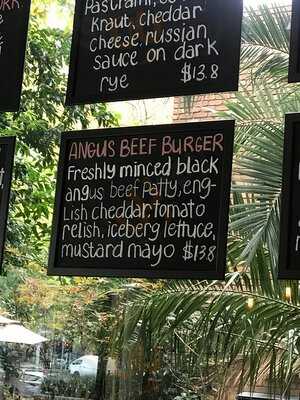 Pastrami,
kraut, cheddar
cheese, russian
sauce on dark
rye $13.8
ANGUS BEEF BURGER
Freshly minced black
angus beef patty, eng-
Lish cheddar, tomato
relish, iceberg lettuce,
mustard mayo $13.8